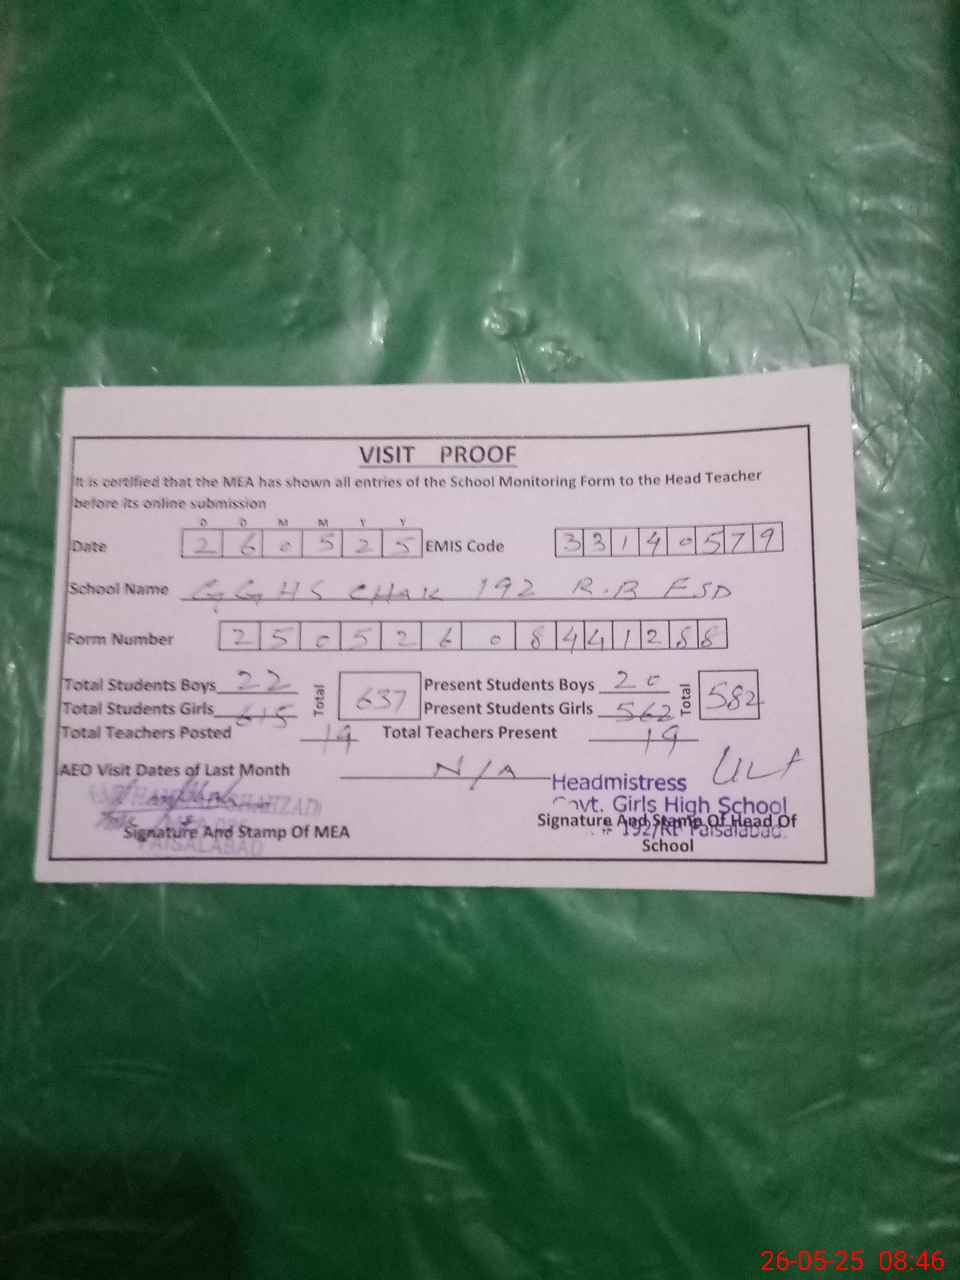 VISIT PROOF
It is certified that the MEA has shown all entries of the School Monitoring Form to the Head Teacher
before its online submission
D D M M Y Y
Date 2 6 0 5 2 5 EMIS Code 3 3 1 4 0 5 7 9
School Name GGHS CHAK 192 R.B FSD
Form Number 2 5 0 5 2 6 0 8 4 4 1 2 8 8
Total Students Boys 22 Total 637 Present Students Boys 20 Total 582
Total Students Girls 615 Present Students Girls 562
Total Teachers Posted 19 Total Teachers Present 19
AEO Visit Dates of Last Month N/A
Headmistress
Govt. Girls High School
192/RB Faisalabad.
SHAHZAD
FAISALABAD
Signature And Stamp Of MEA
Signature And Stamp Of Head Of
School
26-05-25 08:46